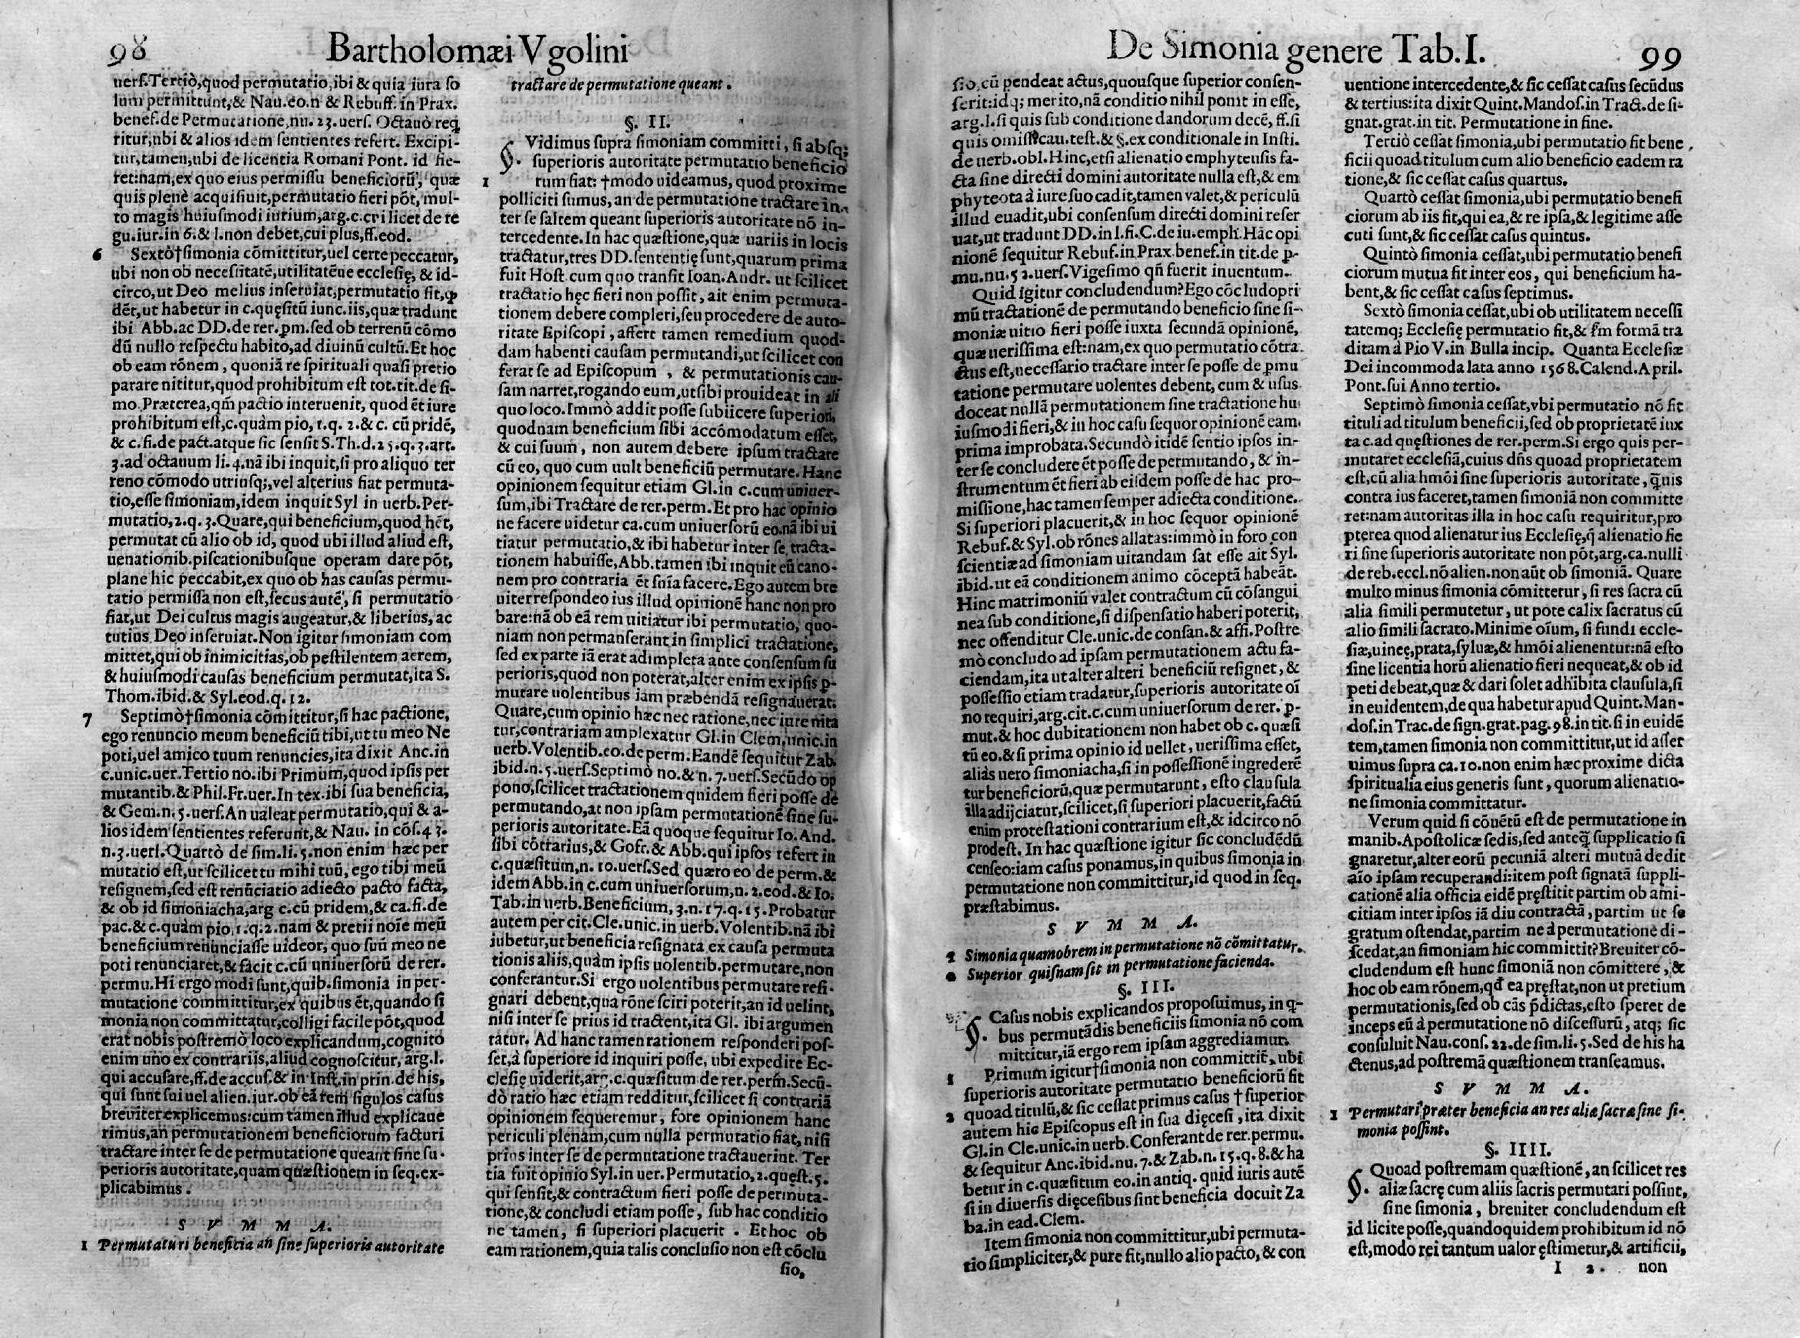 98 Bartholomæi Vgolini
uers. Tertiò, quod permutatio, ibi & quia iura so
lum permittunt, & Nau. eo. n & Rebuff. in Prax.
benef. de Permutatione, nu. 23. uers. Octauò req̃
ritur, ubi & alios idem sentientes refert. Excipi-
tur, tamen, ubi de licentia Romani Pont. id fie-
ret: nam, ex quo eius permissu beneficiorũ, quæ
quis plenè acquisiuit, permutatio fieri põt, mul-
to magis huiusmodi iurium, arg. c. cvi licet de re
gu. iur. in 6. & l. non debet, cui plus, ff. eod.
6 Sextò†simonia cõmittitur, uel certe peccatur,
ubi non ob necessitatẽ, utilitatẽue ecclesię, & id-
circo, ut Deo melius inseruiat, permutatio fit, ꝓ
dẽt, ut habetur in c. quęsitũ iunc. iis, quæ tradunt
ibi Abb. ac DD. de rer. pm. sed ob terrenũ cõmo
dũ nullo respectu habito, ad diuinũ cultũ. Et hoc
ob eam rõnem, quoniã re spirituali quasi pretio
parare nititur, quod prohibitum est tot. tit. de si-
mo. Præterea, qm̃ pactio interuenit, quod ẽt iure
prohibitum est, c. quàm pio, 1. q. 2. & c. cũ pridẽ,
& c. fi. de pact. atque sic sensit S. Th. d. 25. q. 3. art.
3. ad octauum li. 4. nã ibi inquit, si pro aliquo ter
reno cõmodo utriusq;, vel alterius fiat permuta-
tio, esse simoniam, idem inquit Syl in uerb. Per-
mutatio, 2. q. 3. Quare, qui beneficium, quod hẽt,
permutat cũ alio ob id, quod ubi illud aliud est,
uenationib. piscationibusque operam dare põt,
plane hic peccabit, ex quo ob has causas permu-
tatio permissa non est, secus autẽ, si permutatio
fiat, ut Dei cultus magis augeatur, & liberius, ac
tutius Deo inseruiat. Non igitur simoniam com
mittet, qui ob inimicitias, ob pestilentem aerem,
& huiusmodi causas beneficium permutat, ita S.
Thom. ibid. & Syl. eod. q. 12.
7 Septimò†simonia cõmittitur, si hac pactione,
ego renuncio meum beneficiũ tibi, ut tu meo Ne
poti, uel amico tuum renuncies, ita dixit Anc. in
c. unic. uer. Tertio no. ibi Primum, quod ipsis per
mutantib. & Phil. Fr. uer. In tex. ibi sua beneficia,
& Gem. n. 5. uers. An ualeat permutatio, qui & a-
lios idem sentientes referunt, & Nau. in cõs. 43.
n. 3. uersl. Quartò de sim. li. 5. non enim hæc per
mutatio est, ut scilicet tu mihi tuũ, ego tibi meũ
resignem, sed est renũciatio adiecto pacto facta,
& ob id simoniacha, arg c. cũ pridem, & ca. fi. de
pac. & c. quàm pio, 1. q. 2. nam & pretii noĩe meũ
beneficium renunciasse uideor, quo suũ meo ne
poti renunciaret, & facit c. cũ uniuersorũ de rer.
permu. Hi ergo modi sunt, quib. simonia in per-
mutatione committitur, ex quibus ẽt, quando si
monia non committatur, colligi facile põt, quod
erat nobis postremò loco explicandum, cognito
enim uno ex contrariis, aliud cognoscitur, arg. l.
qui accusare, ff. de accus. & in Inst. in prin. de his,
qui sunt sui uel alien. iur. ob eã rem sigulos casus
breuiter explicemus: cum tamen illud explicaue
rimus, an permutationem beneficiorum facturi
tractare inter se de permutatione queant sine su-
perioris autoritate, quam quæstionem in seq. ex-
plicabimus.
S V M M A.
1 Permutaturi beneficia añ sine superioris autoritate
tractare de permutatione queant.
§. II.
§. Vidimus supra simoniam committi, si absq;
superioris autoritate permutatio beneficio
1 rum fiat: †modo uideamus, quod proxime
polliciti sumus, an de permutatione tractare in-
ter se saltem queant superioris autoritate nõ in-
tercedente. In hac quæstione, quæ uariis in locis
tractatur, tres DD. sententię sunt, quarum prima
fuit Host. cum quo transit Ioan. Andr. ut scilicet
tractatio hęc fieri non possit, ait enim permuta-
tionem debere compleri, seu procedere de auto-
ritate Episcopi, affert tamen remedium quod-
dam habenti causam permutandi, ut scilicet con
ferat se ad Episcopum, & permutationis cau-
sam narret, rogando eum, ut sibi prouideat in ali
quo loco. Immò addit posse subiicere superiori,
quodnam beneficium sibi accõmodatum esset,
& cui suum, non autem debere ipsum tractare
cũ eo, quo cum uult beneficiũ permutare. Hanc
opinionem sequitur etiam Gl. in c. cum uniuer-
sum, ibi Tractare de rer. perm. Et pro hac opinio
ne facere uidetur ca. cum uniuersorũ eo. nã ibi ui
tiatur permutatio, & ibi habetur inter se tracta-
tionem habuisse, Abb. tamen ibi inquit eũ cano-
nem pro contraria ẽt sñia facere. Ego autem bre
uiter respondeo ius illud opinionẽ hanc non pro
bare: nã ob eã rem uitiatur ibi permutatio, quo-
niam non permanserant in simplici tractatione,
sed ex parte iã erat adimpleta ante consensum su
perioris, quod non poterat, alter enim ex ipsis ꝑ-
mutare uolentibus iam præbendã resignauerat.
Quare, cum opinio hæc nec ratione, nec iure nita
tur, contrariam amplexatur Gl. in Clem. unic. in
uerb. Volentib. eo. de perm. Eandẽ sequitur Zab.
ibid. n. 5. uers. Septimò no. & n. 7. uers. Secũdo op
pono, scilicet tractationem quidem fieri posse de
permutando, at non ipsam permutationẽ sine su-
perioris autoritate. Eã quoque sequitur Io. And.
sibi cõtrarius, & Gofr. & Abb. qui ipsos refert in
c. quæsitum, n. 10. uers. Sed quæro eo de perm. &
idem Abb. in c. cum uniuersorum, n. 2. eod. & Io.
Tab. in uerb. Beneficium, 3. n. 17. q. 15. Probatur
autem per cit. Cle. unic. in uerb. Volentib. nã ibi
iubetur, ut beneficia resignata ex causa permuta
tionis aliis, quàm ipsis uolentib. permutare, non
conferantur. Si ergo uolentibus permutare resi-
gnari debent, qua rõne sciri poterit, an id uelint,
nisi inter se prius id tractent, ita Gl. ibi argumen
tatur. Ad hanc tamen rationem responderi pos-
set, à superiore id inquiri posse, ubi expedire Ec-
clesię uiderit, arg. c. quæsitum de rer. perm̃. Secũ-
dò ratio hæc etiam redditur, scilicet si contrariã
opinionem sequeremur, fore opinionem hanc
periculi plenam, cum nulla permutatio fiat, nisi
prius inter se de permutatione tractauerint. Ter
tia fuit opinio Syl. in uer. Permutatio, 2. quęst. 5.
qui sensit, & contractum fieri posse de permuta-
tione, & concludi etiam posse, sub hac conditio
ne tamen, si superiori placuerit. Et hoc ob
eam rationem, quia talis conclusio non est cõclu
sio,
De Simonia genere Tab. I. 99
sio, cũ pendeat actus, quousque superior consen-
serit: idq; merito, nã conditio nihil ponit in esse,
arg. l. si quis sub conditione dandorum decẽ, ff. si
quis omiss. cau. test. & §. ex conditionale in Insti.
de uerb. obl. Hinc, etsi alienatio emphyteusis fa-
cta sine directi domini autoritate nulla est, & em
phyteota à iure suo cadit, tamen valet, & periculũ
illud euadit, ubi consensum directi domini reser
uat, ut tradunt DD. in l. fi. C. de iu. emph. Hãc opi
nionẽ sequitur Rebuf. in Prax. benef. in tit. de ꝑ-
mu. nu. 52. uers. Vigesimo qñ fuerit inuentum.
Quid igitur concludendum? Ego cõcludo pri
mũ tractationẽ de permutando beneficio sine si-
moniæ uitio fieri posse iuxta secundã opinionẽ,
quæ uerissima est: nam, ex quo permutatio cõtra-
ctus est, necessario tractare inter se posse de ꝑmu
tatione permutare uolentes debent, cum & usus
doceat nullã permutationem sine tractatione hu
iusmodi fieri, & in hoc casu sequor opinionẽ eam,
prima improbata. Secundò itidẽ sentio ipsos in-
ter se concludere ẽt posse de permutando, & in-
strumentum ẽt fieri ab eisdem posse de hac pro-
missione, hac tamen semper adiecta conditione.
Si superiori placuerit, & in hoc sequor opinionẽ
Rebuf. & Syl. ob rõnes allatas: immò in foro con
scientiæ ad simoniam uitandam sat esse ait Syl.
ibid. ut eã conditionem animo cõceptã habeãt.
Hinc matrimoniũ valet contractum cũ cõsangui
nea sub conditione, si dispensatio haberi poterit,
nec offenditur Cle. unic. de consan. & affi. Postre
mò concludo ad ipsam permutationem actu fa-
ciendam, ita ut alter alteri beneficiũ resignet, &
possessio etiam tradatur, superioris autoritate oĩ
no requiri, arg. cit. c. cum uniuersorum de rer. ꝑ-
mut. & hoc dubitationem non habet ob c. quæsi
tũ eo. & si prima opinio id uellet, uerissima esset,
aliàs uero simoniacha, si in possessionẽ ingrederẽ
tur beneficiorũ, quæ permutarunt, esto clausula
illa adijciatur, scilicet, si superiori placuerit, factũ
enim protestationi contrarium est, & idcirco nõ
prodest. In hac quæstione igitur sic concludẽdũ
censeo: iam casus ponamus, in quibus simonia in
permutatione non committitur, id quod in seq.
præstabimus.
S V M M A.
1 Simonia quamobrem in permutatione nõ cõmittatur.
2 Superior quisnam sit in permutatione facienda.
§. III.
§. Casus nobis explicandos proposuimus, in q̃-
bus permutãdis beneficiis simonia nõ com
mittitur, iã ergo rem ipsam aggrediamur.
1 Primum igitur†simonia non committit̃, ubi
superioris autoritate permutatio beneficiorũ fit
2 quoad titulũ, & sic cessat primus casus † superior
autem hic Episcopus est in sua dięcesi, ita dixit
Gl. in Cle. unic. in uerb. Conferant de rer. permu.
& sequitur Anc. ibid. nu. 7. & Zab. n. 15. q. 8. & ha
betur in c. quæsitum eo. in antiq. quid iuris autẽ
si in diuersis dięcesibus sint beneficia docuit Za
ba. in ead. Clem.
Item simonia non committitur, ubi permuta-
tio simpliciter, & pure fit, nullo alio pacto, & con
uentione intercedente, & sic cessat casus secũdus
& tertius: ita dixit Quint. Mandos. in Tract. de si-
gnat. grat. in tit. Permutatione in fine.
Tertiò cessat simonia, ubi permutatio fit bene
ficii quoad titulum cum alio beneficio eadem ra
tione, & sic cessat casus quartus.
Quartò cessat simonia, ubi permutatio benefi
ciorum ab iis fit, qui ea, & re ipsa, & legitime asse
cuti sunt, & sic cessat casus quintus.
Quintò simonia cessat, ubi permutatio benefi
ciorum mutua fit inter eos, qui beneficium ha-
bent, & sic cessat casus septimus.
Sextò simonia cessat, ubi ob utilitatem necessi
tatemq; Ecclesię permutatio fit, & fm formã tra
ditam à Pio V. in Bulla incip. Quanta Ecclesiæ
Dei incommoda lata anno 1568. Calend. April.
Pont. sui Anno tertio.
Septimò simonia cessat, vbi permutatio nõ fit
tituli ad titulum beneficii, sed ob proprietatẽ iux
ta c. ad quęstiones de rer. perm. Si ergo quis per-
mutaret ecclesiã, cuius dñs quoad proprietatem
est, cũ alia hmõi sine superioris autoritate, q̃uis
contra ius faceret, tamen simoniã non committe
ret: nam autoritas illa in hoc casu requiritur, pro
pterea quod alienatur ius Ecclesię, q̃ alienatio fie
ri sine superioris autoritate non põt, arg. ca. nulli
de reb. eccl. nõ alien. non aũt ob simoniã. Quare
multo minus simonia cõmittetur, si res sacra cũ
alia simili permutetur, ut pote calix sacratus cũ
alio simili sacrato. Minime oĩum, si fundi eccle-
siæ, uineę, prata, syluæ, & hmõi alienentur: nã esto
sine licentia horũ alienatio fieri nequeat, & ob id
peti debeat, quæ & dari solet adhibita clausula, si
in euidentem, de qua habetur apud Quint. Man-
dos. in Trac. de sign. grat. pag. 98. in tit. si in euidẽ
tem, tamen simonia non committitur, ut id asser
uimus supra ca. 10. non enim hæc proxime dicta
spiritualia eius generis sunt, quorum alienatio-
ne simonia committatur.
Verum quid si cõuẽtũ est de permutatione in
manib. Apostolicæ sedis, sed anteq̃ supplicatio si
gnaretur, alter eorũ pecuniã alteri mutuã dedit
aĩo ipsam recuperandi: item post signatã suppli-
cationẽ alia officia eidẽ pręstitit partim ob ami-
citiam inter ipsos iã diu contractã, partim ut se
gratum ostendat, partim ne à permutatione di-
scedat, an simoniam hic committit? Breuiter cõ-
cludendum est hunc simoniã non cõmittere, &
hoc ob eam rõnem, qd̃ ea pręstat, non ut pretium
permutationis, sed ob cãs p̃dictas, esto speret de
inceps eũ à permutatione nõ discessurũ, atq; sic
consuluit Nau. cons. 22. de sim. li. 5. Sed de his ha
ctenus, ad postremã quæstionem transeamus.
S V M M A.
1 Permutari præter beneficia an res aliæ sacræ sine si-
monia possint.
§. IIII.
§. Quoad postremam quæstionẽ, an scilicet res
aliæ sacrę cum aliis sacris permutari possint,
sine simonia, breuiter concludendum est
id licite posse, quandoquidem prohibitum id nõ
est, modo rei tantum ualor ęstimetur, & artificii,
I 2. non